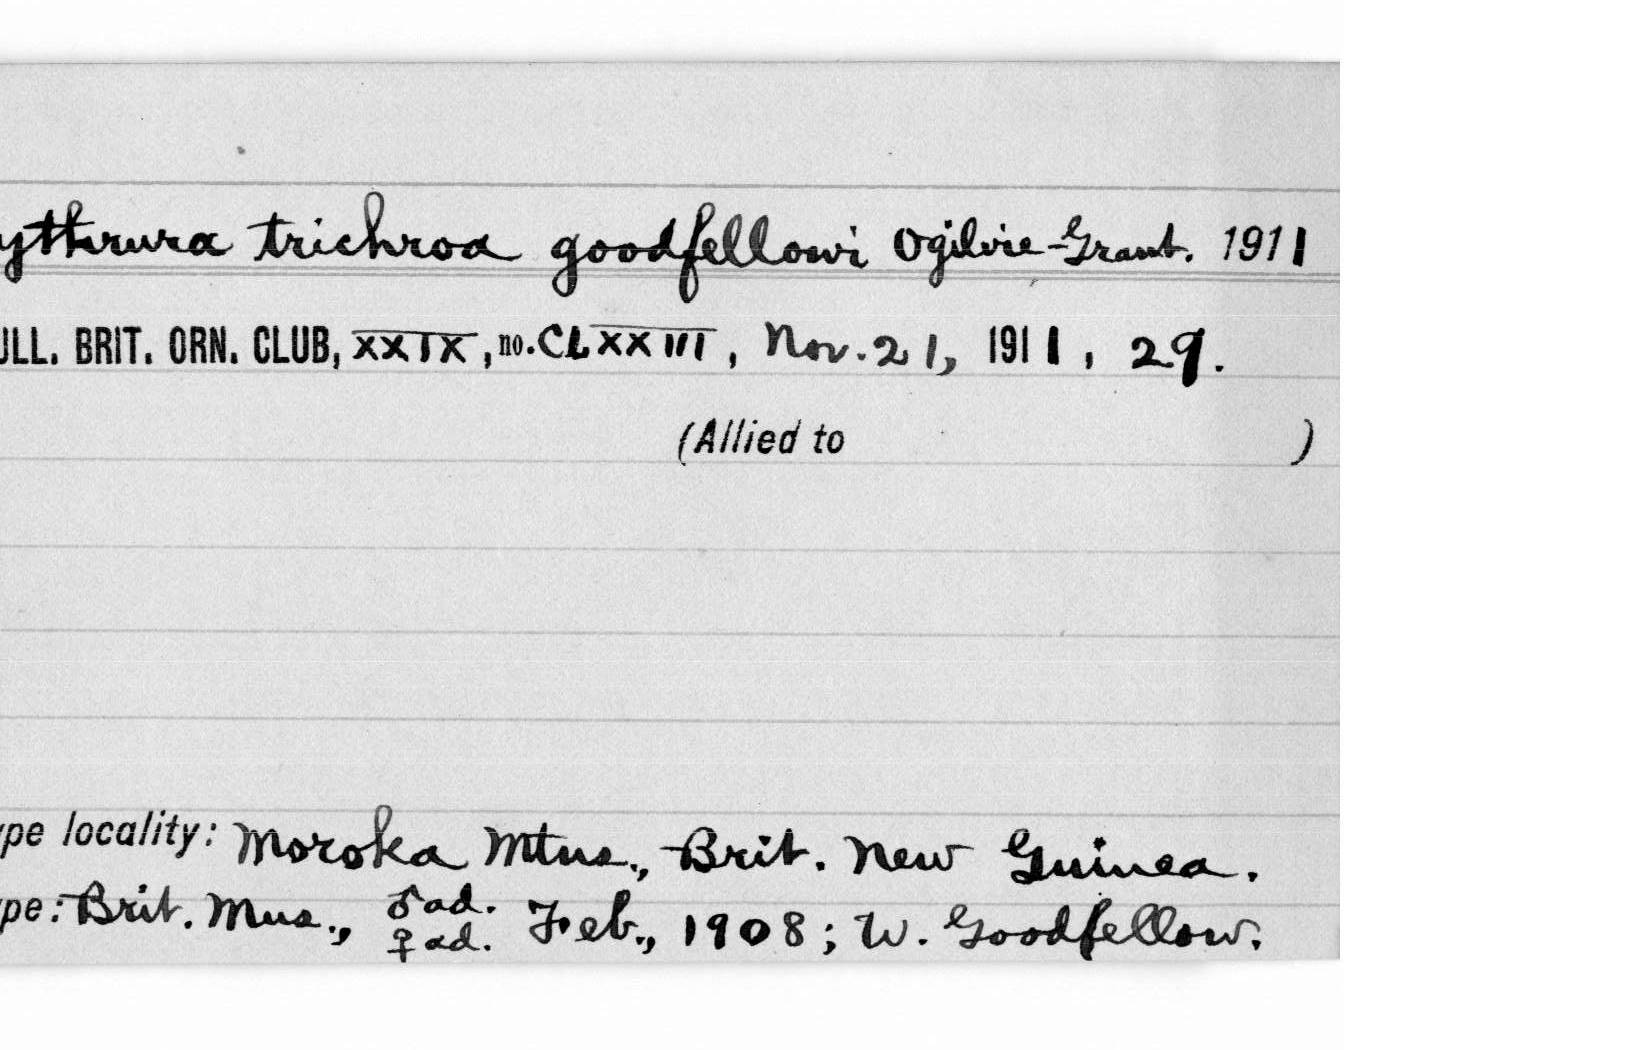 ythrura trichroa goodfellowi Ogilvie-Grant. 1911
ULL. BRIT. ORN. CLUB, XXIX, no. CLXXIII, Nov. 21, 1911, 29.
(Allied to )
ype locality: Moroka Mtns., Brit. New Guinea.
ype: Brit. Mus., ♂ad. ♀ad. Feb., 1908; W. Goodfellow.